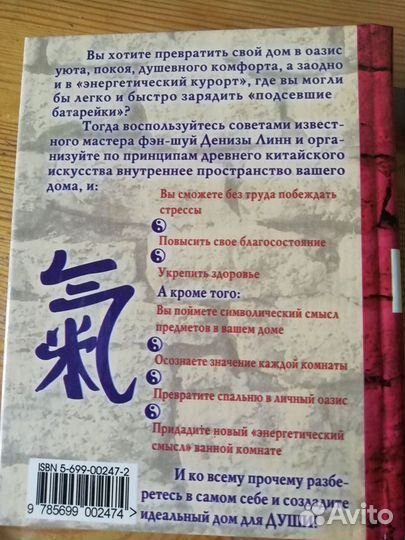 Вы хотите превратить свой дом в оазис
уюта, покоя, душевного комфорта, а заодно
и в «энергетический курорт», где вы могли
бы легко и быстро зарядить «подсевшие
батарейки»?
Тогда воспользуйтесь советами извест-
ного мастера фэн-шуй Денизы Линн и орга-
низуйте по принципам древнего китайского
искусства внутреннее пространство вашего
дома, и:
Вы сможете без труда побеждать
стрессы
Повысить свое благосостояние
Укрепить здоровье
А кроме того:
Вы поймете символический смысл
предметов в вашем доме
Осознаете значение каждой комнаты
Превратите спальню в личный оазис
Придадите новый «энергетический
смысл» ванной комнате
氣
И ко всему прочему разбе-
ретесь в самом себе и создадите
идеальный дом для ДУШИ!
ISBN 5-699-00247-2
9 785699 002474 >
Avito